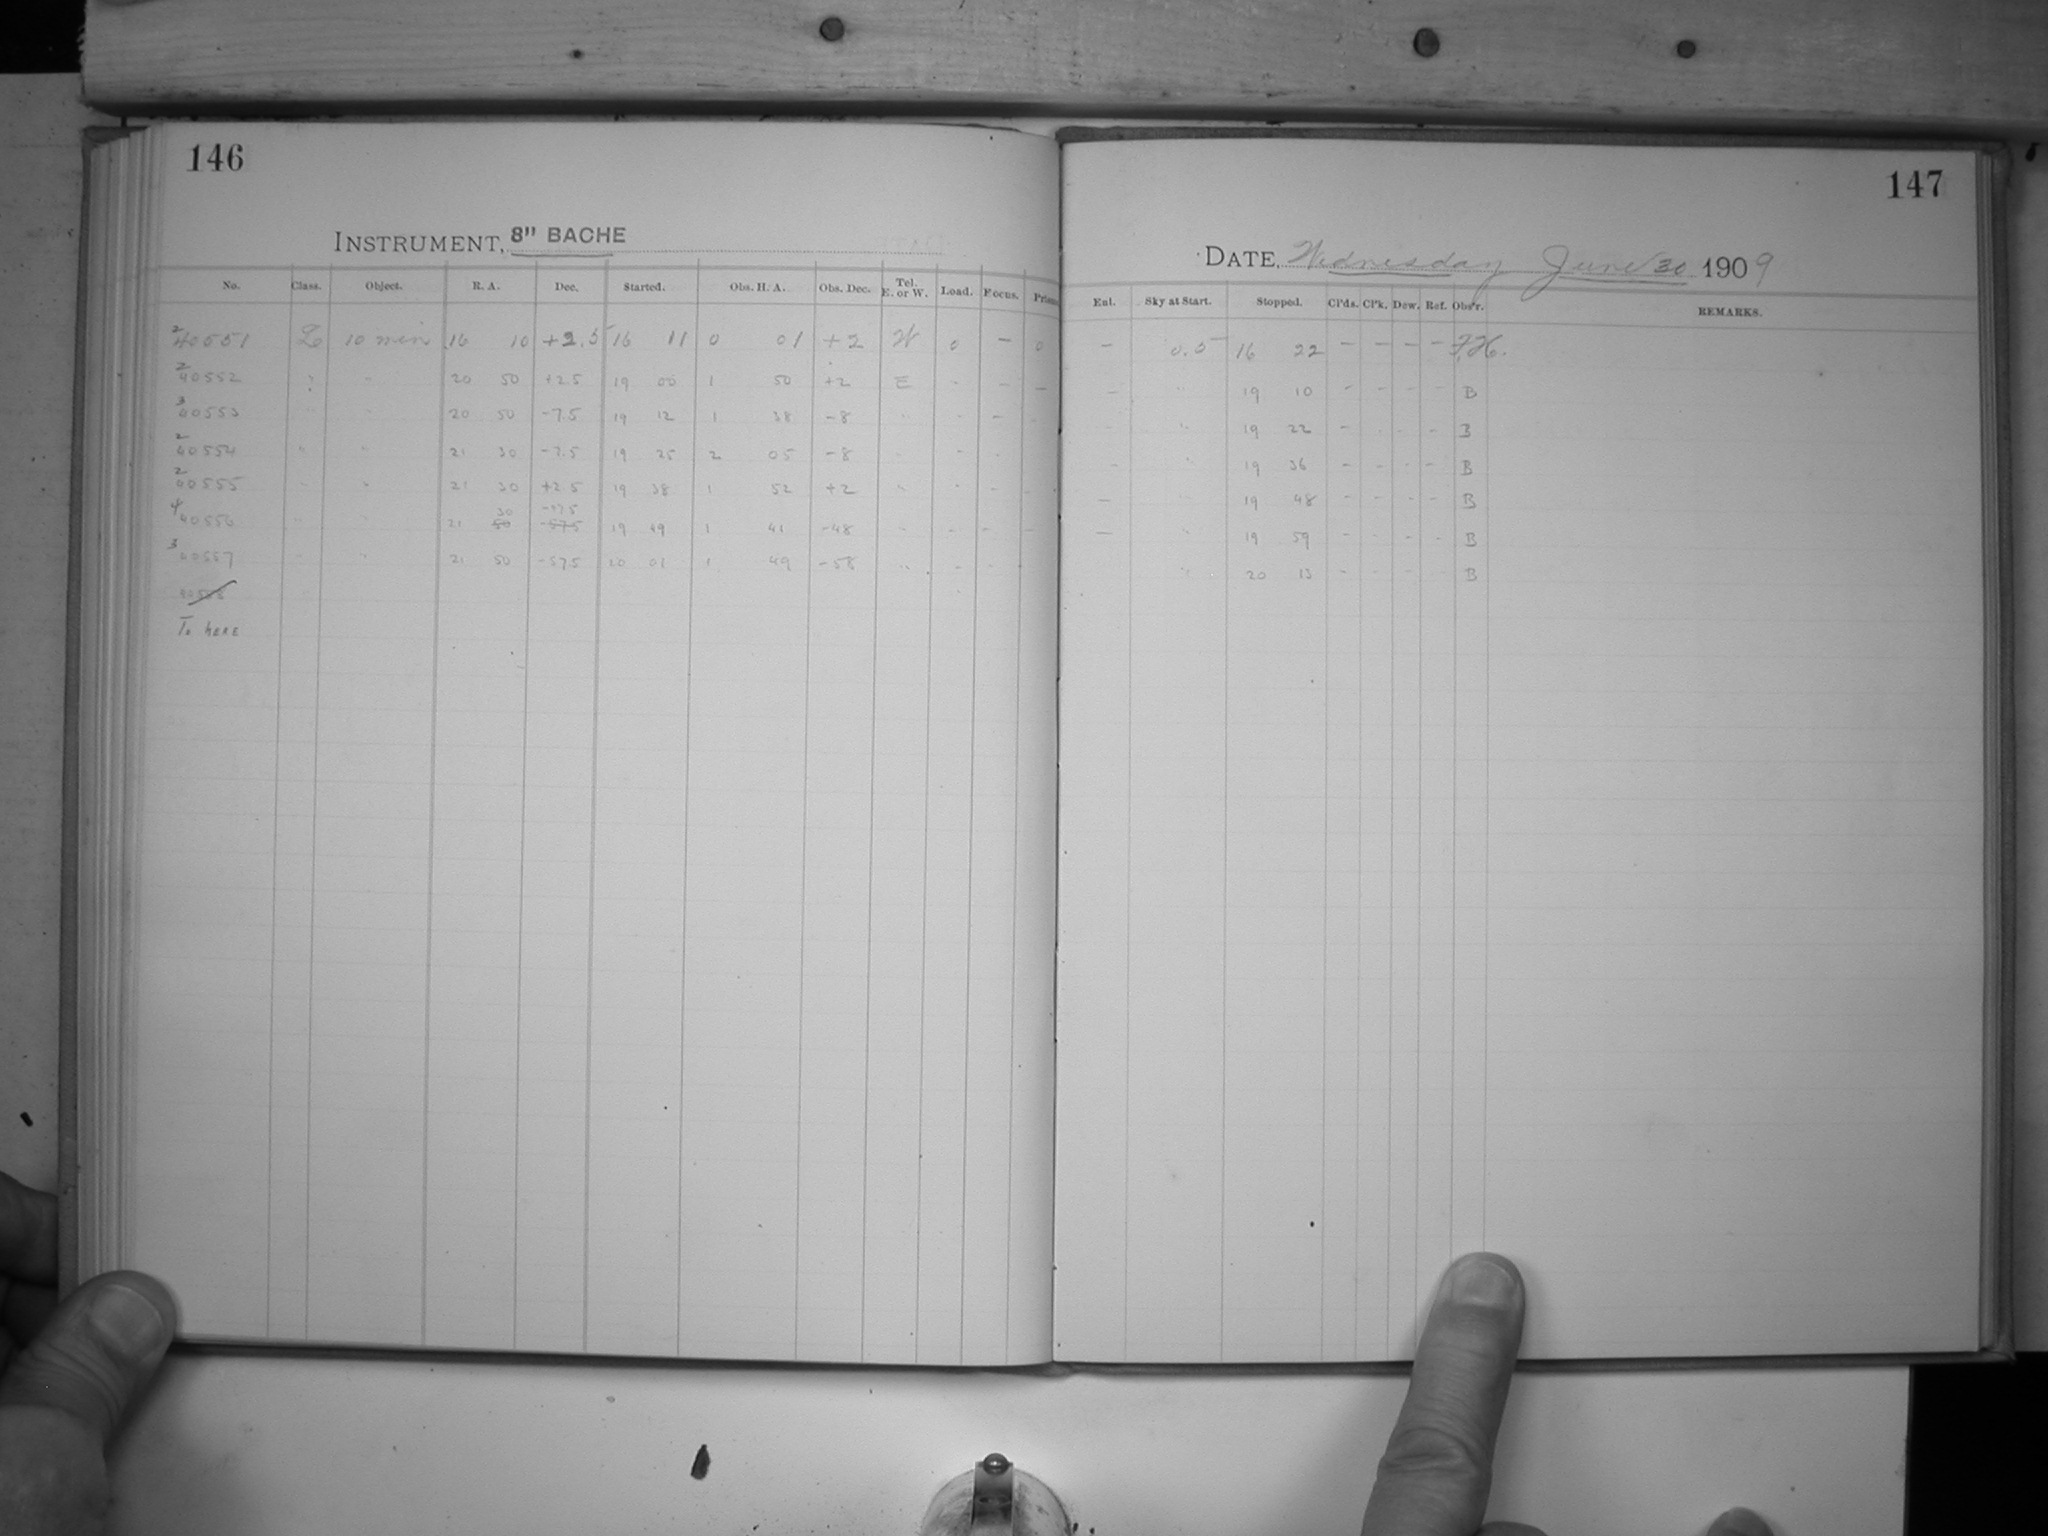 146
INSTRUMENT, 8" BACHE
No. Class. Object. R. A. Dec. Started. Obs. H. A. Obs. Dec. Tel. E. or W. Load. Focus. Prism
2 40551 L 10 min 16 10 +2.5 16 11 0 01 +2 W 0 - 0
2 40552 " " 20 50 +2.5 19 00 1 50 +2 E - - -
3 40553 " " 20 50 -7.5 19 12 1 38 -8 " - -
2 40554 " " 21 30 -7.5 19 25 2 05 -8 " - -
2 40555 " " 21 30 +2.5 19 38 1 52 +2 " - - -
30
4 40556 " " 21 50 -57.5 19 49 1 41 -48 - - - -
3 40557 " " 21 50 -57.5 20 01 1 49 -58 " - -
40558
To here
147
DATE, Wednesday June 30 1909
Enl. Sky at Start. Stopped. Cl'ds. Cl'k. Dew. Ref. Obs'r. REMARKS.
- 0.5 16 22 - - - - F.H.
- " 19 10 - - - - B
- " 19 22 - - - - B
- " 19 36 - - - - B
- " 19 48 - - - - B
- " 19 59 - - - - B
" 20 13 - - - - B